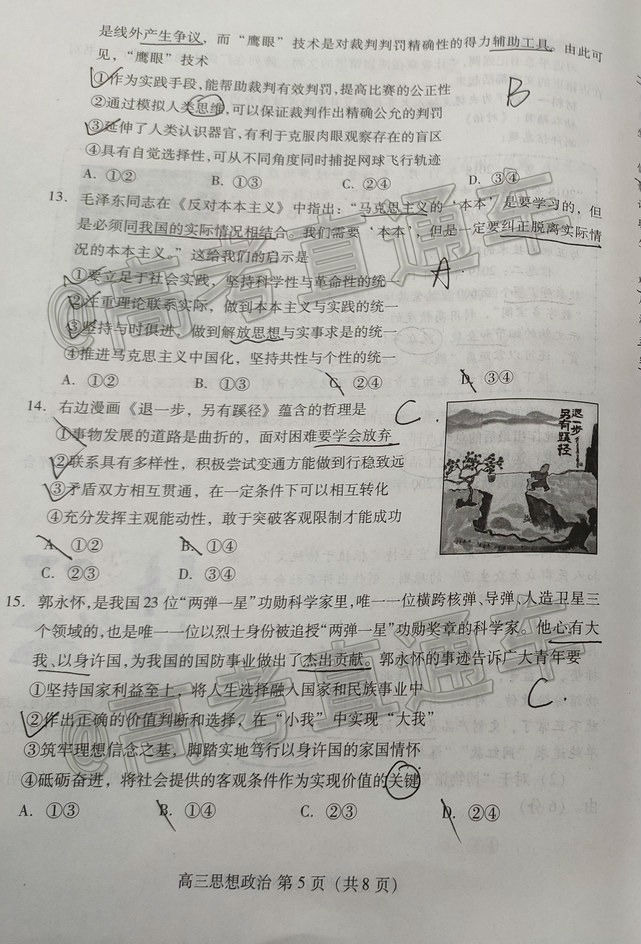 是线外产生争议，而“鹰眼”技术是对裁判判罚精确性的得力辅助工具。由此可
见，“鹰眼”技术
①作为实践手段，能帮助裁判有效判罚，提高比赛的公正性
②通过模拟人类思维，可以保证裁判作出精确公允的判罚
③延伸了人类认识器官，有利于克服肉眼观察存在的盲区
④具有自觉选择性，可从不同角度同时捕捉网球飞行轨迹
B
A．①② B．①③ C．②④ D．③④
13．毛泽东同志在《反对本本主义》中指出：“马克思主义的‘本本’是要学习的，但
是必须同我国的实际情况相结合。我们需要‘本本’，但是一定要纠正脱离实际情
况的本本主义。”这给我们的启示是
A
①要立足于社会实践，坚持科学性与革命性的统一
②注重理论联系实际，做到本本主义与实践的统一
③坚持与时俱进，做到解放思想与实事求是的统一
④推进马克思主义中国化，坚持共性与个性的统一
A．①② B．①③ C．②④ D．③④
14．右边漫画《退一步，另有蹊径》蕴含的哲理是
C.
①事物发展的道路是曲折的，面对困难要学会放弃
②联系具有多样性，积极尝试变通方能做到行稳致远
③矛盾双方相互贯通，在一定条件下可以相互转化
④充分发挥主观能动性，敢于突破客观限制才能成功
A．①② B．①④
C．②③ D．③④
退一步
另有蹊径
15．郭永怀，是我国23位“两弹一星”功勋科学家里，唯一一位横跨核弹、导弹、人造卫星三
个领域的，也是唯一一位以烈士身份被追授“两弹一星”功勋奖章的科学家。他心有大
我、以身许国，为我国的国防事业做出了杰出贡献。郭永怀的事迹告诉广大青年要
C.
①坚持国家利益至上，将人生选择融入国家和民族事业中
②作出正确的价值判断和选择，在“小我”中实现“大我”
③筑牢理想信念之基，脚踏实地笃行以身许国的家国情怀
④砥砺奋进，将社会提供的客观条件作为实现价值的关键
A．①③ B．①④ C．②③ D．②④
高三思想政治 第5页（共8页）
@高考直通车
@高考直通车